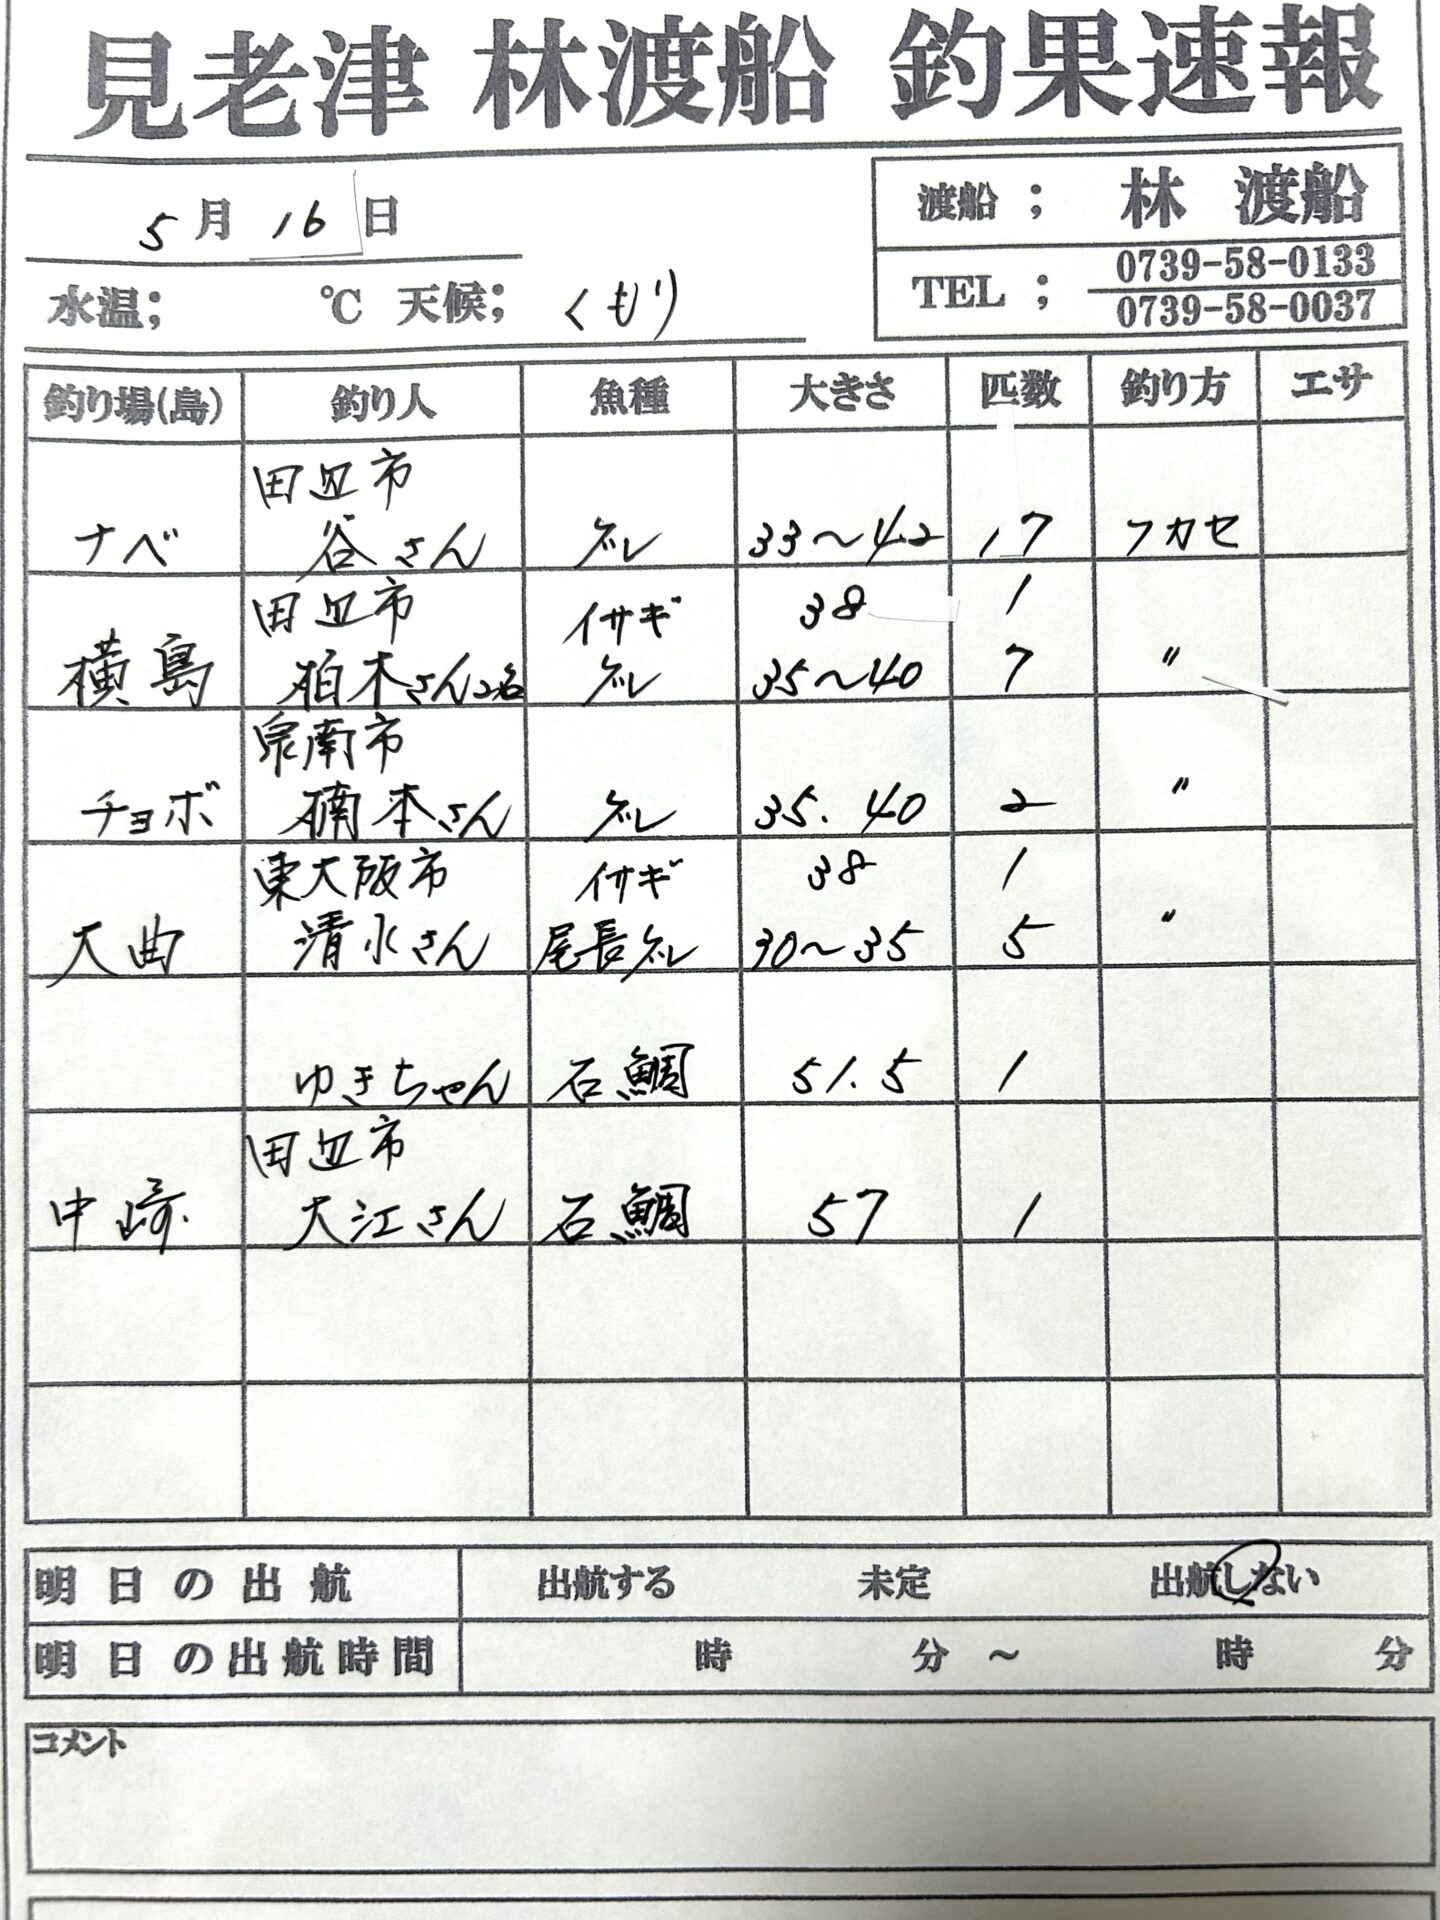 見老津 林渡船 釣果速報
5月16日
渡船; 林 渡船
TEL; 0739-58-0133
0739-58-0037
水温; ℃ 天候; くもり
釣り場(島) 釣り人 魚種 大きさ 匹数 釣り方 エサ
田辺市
ナベ 谷さん グレ 33～42 17 フカセ
田辺市 イサギ 38 1
横島 柏木さん2名 グレ 35～40 7 〃
泉南市
チョボ 楠本さん グレ 35.40 2 〃
東大阪市 イサギ 38 1
大曲 清水さん 尾長グレ 30～35 5 〃
ゆきちゃん 石鯛 51.5 1
田辺市
中崎 大江さん 石鯛 57 1
明日の出航 出航する 未定 出航しない
明日の出航時間 時 分 ～ 時 分
コメント